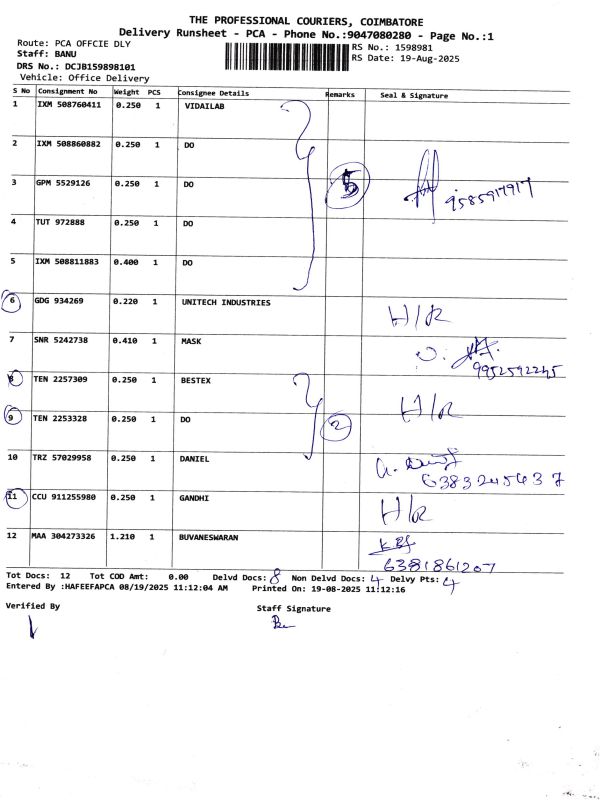 THE PROFESSIONAL COURIERS, COIMBATORE
Delivery Runsheet - PCA - Phone No.:9047080280 - Page No.:1
Route: PCA OFFCIE DLY
Staff: BANU
DRS No.: DCJB159898101
Vehicle: Office Delivery
RS No.: 1598981
RS Date: 19-Aug-2025
S No Consignment No Weight PCS Consignee Details Remarks Seal & Signature
1 IXM 508760411 0.250 1 VIDAILAB
2 IXM 508860882 0.250 1 DO
3 GPM 5529126 0.250 1 DO 5 9585917917
4 TUT 972888 0.250 1 DO
5 IXM 508811883 0.400 1 DO
6 GDG 934269 0.220 1 UNITECH INDUSTRIES H/R
7 SNR 5242738 0.410 1 MASK 9952592245
8 TEN 2257309 0.250 1 BESTEX H/R
9 TEN 2253328 0.250 1 DO 2
10 TRZ 57029958 0.250 1 DANIEL 6383245637
11 CCU 911255980 0.250 1 GANDHI H/R
12 MAA 304273326 1.210 1 BUVANESWARAN 6381861207
Tot Docs: 12 Tot COD Amt: 0.00 Delvd Docs: 8 Non Delvd Docs: 4 Delvy Pts: 4
Entered By :HAFEEFAPCA 08/19/2025 11:12:04 AM Printed On: 19-08-2025 11:12:16
Verified By Staff Signature